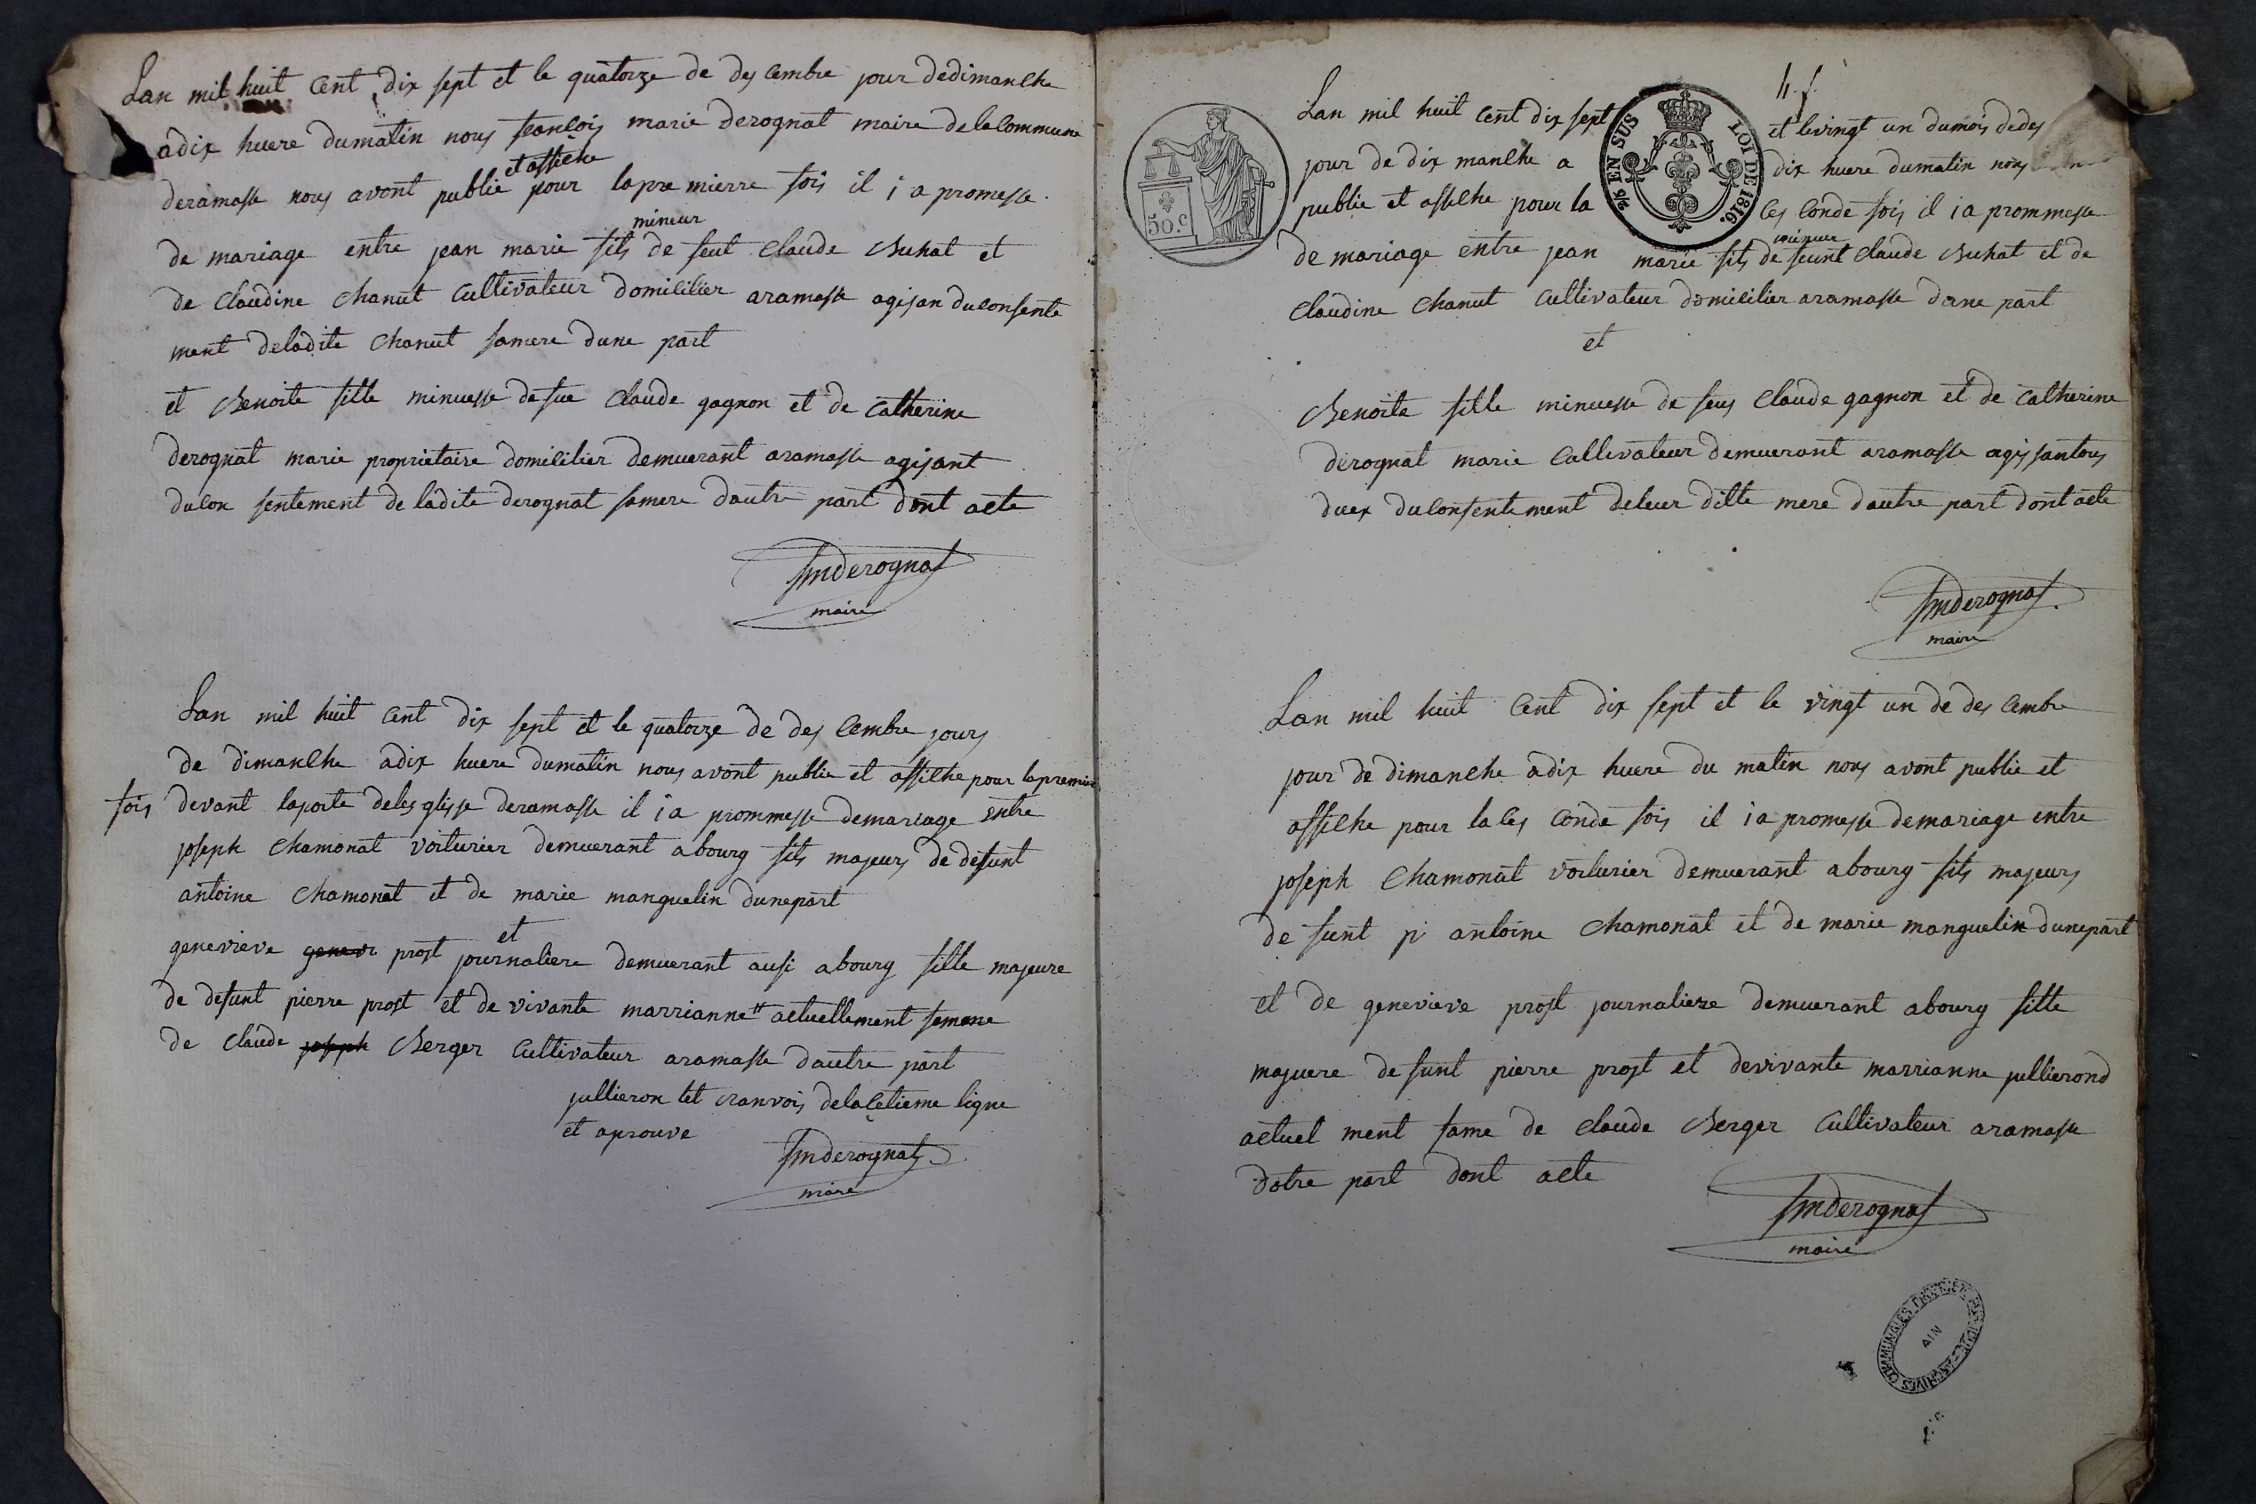 Lan mil huit Cent dix sept et le quatorze de des Cembre jour dedimanche
adix huere dumatin nous francois marie derognat maire delaCommune
et affiche
deramasse nous avont publie pour lapre mierre fois il i a promesse
mineur
de mariage entre jean marie fils de feut Claude Buhat et
de Claudine Chanut Cultivateur domicilier aramasse agisan duConsente
ment deladite Chanut samere dune part
et Benoite fille minuesse de fue Claude gagnon et de Catherine
derognat marie proprietaire domicilier demuerant aramasse agisant
duCon sentement de ladite derognat samere dautre part dont acte
fmderognat
maire
Lan mil huit Cent dix sept et le quatorze de des Cembre jours
de dimanche adix huere dumatin nous avont publie et affiche pour lapremier
fois devant laporte delesglisse deramasse il i a prommesse demariage entre
joseph Chamonat voiturier demuerant abourg fils majeurs de defunt
antoine Chamonat et de marie manguelin dunepart
et
genevieve genevi prost journaliere demuerant ausi abourg fille majeure
de defunt pierre prost et de vivante marrianne # actuellement femme
de Claude joseph Berger Cultivateur aramasse dautre part
jullieron tel ranvois delaCetieme ligne
et aprouve
fmderognat
maire
4 f.
Lan mil huit Cent dix sept et levingt un dumois dedes
jour de dix manche a dix huere dumatin nous
publie et affiche pour la Ces Conde fois il i a prommesse
mineure
de mariage entre jean marie fils de feunt Claude Buhat et de
Claudine Chanut Cultivateur domicilier aramasse dune part
et
Benoite fille minuesse de feus Claude gagnon et de Catherine
derognat marie Cultivateur demuerant aramasse agissantous
duex duConsentement deleur ditte mere dautre part dont acte
fmderognat
maire
Lan mil huit Cent dix sept et le vingt un de des Cembre
jour de dimanche adix huere du matin nous avont publie et
affiche pour la Ces Conde fois il i a promesse demariage entre
joseph Chamonat voiturier demuerant abourg fils majeurs
de funt p antoine Chamonat et de marie manguelin dunepart
et de genevieve prost journaliere demuerant abourg fille
majuere defunt pierre prost et devivante marrianne jullierond
actuel ment fame de Claude Berger Cultivateur aramasse
dotre part dont acte
fmderognat
maire
50.c
EN SUS
LOI DE 1816.
ARCHIVES COMMUNALES
AIN